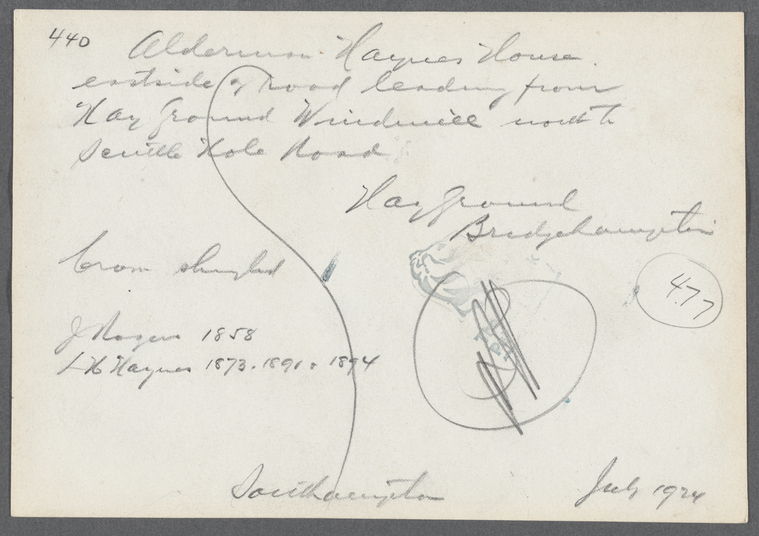 440
Alderman Haynes House.
eastside of road leading from
Hay Ground Windmill north to
Scuttle Hole Road
Hay Ground
Bridgehampton
477
shingled
J Rogers 1858
H Haynes 1873. 1891. 1894
Southampton
July 1924